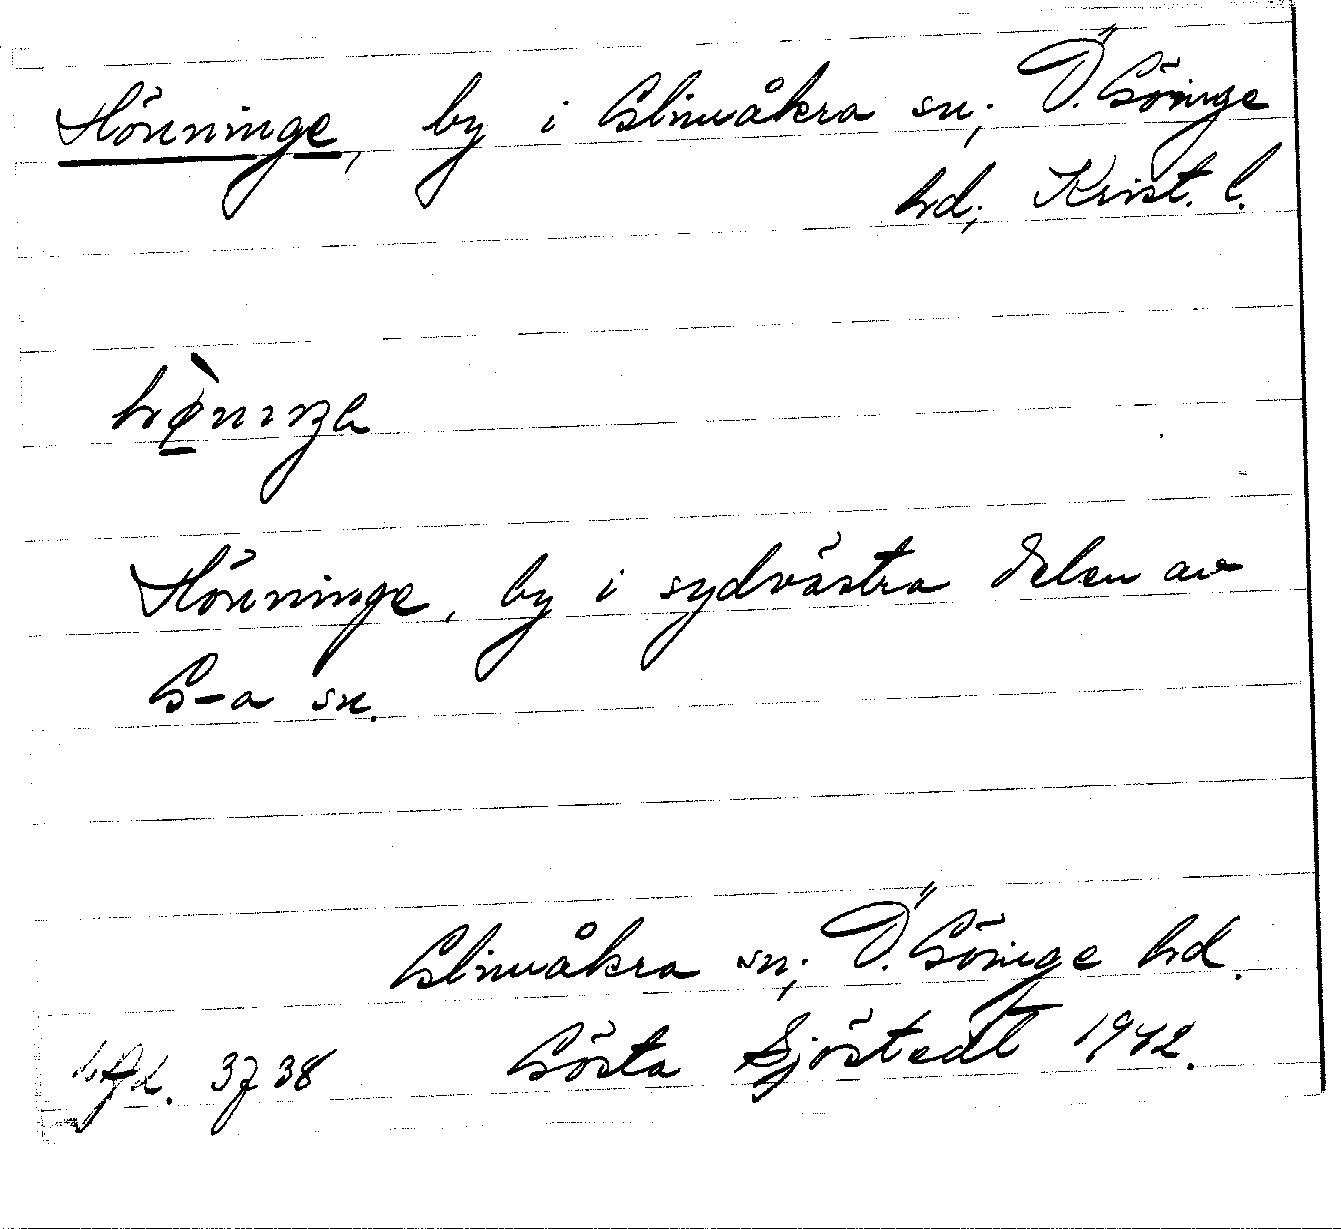 Hönninge, by i Glimåkra sn; Ö. Göinge
hd; Krist. l.
Hönninge, by i sydvästra delen av
G-a sn.
Glimåkra sn; Ö. Göinge hd.
Gösta Sjöstedt 1942.
3738